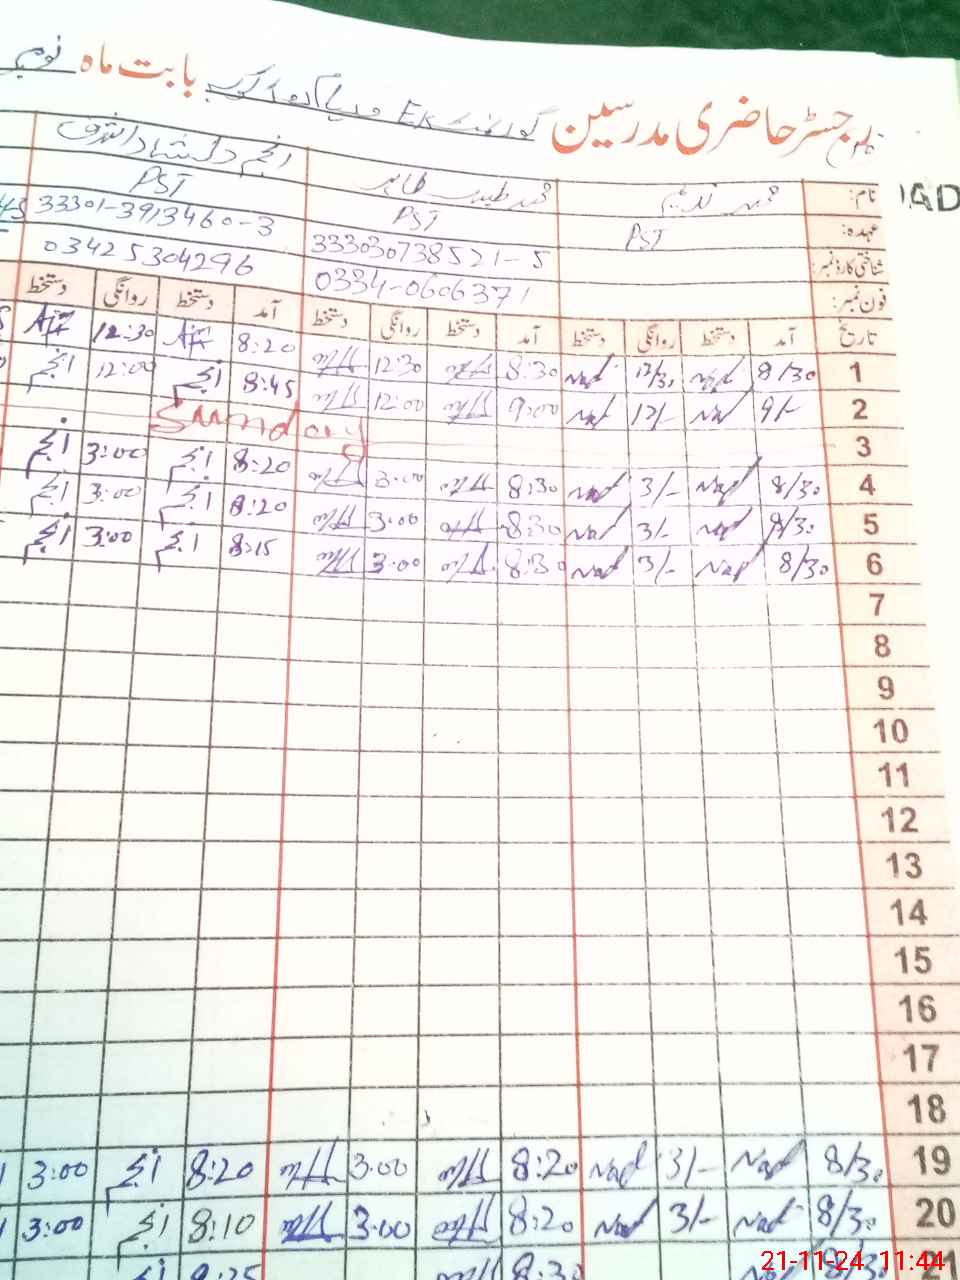 رجسٹر حاضری مدرسین گورنمنٹ بابت ماہ نومبر
نام: محمد ندیم محمد طیب طاہر انجم دلشاد اشرف
عہدہ: PST PST PST
شناختی کارڈ نمبر: 333030738521-5 33301-3913460-3
فون نمبر: 0334-0606371 03425304296
تاریخ آمد دستخط روانگی دستخط آمد دستخط روانگی دستخط آمد دستخط روانگی دستخط
1 8/30 Nad 12/30 Nad 8:30 12:30 8:20 12:30
2 9/- Nad 12/- Nad 9:00 12:00 8:45 انجم 12:00 انجم
3 Sunday
4 8/30 Nad 3/- Nad 8:30 3:00 8:20 انجم 3:00 انجم
5 8/30 Nad 3/- Nad 8:30 3:00 8:20 انجم 3:00 انجم
6 8/30 Nad 3/- Nad 8:30 3:00 8:15 انجم 3:00 انجم
7
8
9
10
11
12
13
14
15
16
17
18
19 8/30 Nad 3/- Nad 8:20 3:00 8:20 انجم 3:00
20 8/30 Nad 3/- Nad 8:20 3:00 8:10 انجم 3:00
21 8/30 Nad 8:30 8:25 انجم
IAD
21-11-24 11:44